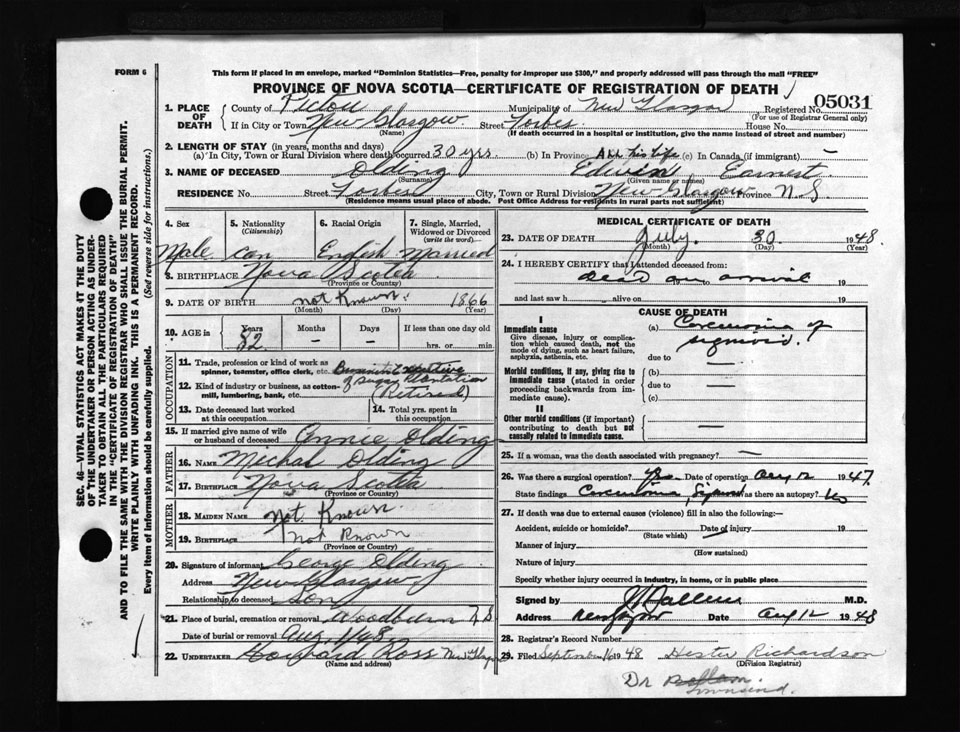 FORM 6
This form if placed in an envelope, marked "Dominion Statistics—Free, penalty for improper use $300," and properly addressed will pass through the mail "FREE"
PROVINCE OF NOVA SCOTIA—CERTIFICATE OF REGISTRATION OF DEATH
1. PLACE OF DEATH
County of Pictou Municipality of New Glasgow Registered No. 05031
(For use of Registrar General only)
If in City or Town New Glasgow Street Forbes House No.
(Name) (If death occurred in a hospital or institution, give the name instead of street and number)
2. LENGTH OF STAY (in years, months and days)
(a) In City, Town or Rural Division where death occurred 30 yrs. (b) In Province All his life (c) In Canada (if immigrant) —
3. NAME OF DECEASED Olding Edwin Earnest
(Surname) (Given name or names)
RESIDENCE No. Street Forbes City, Town or Rural Division New Glasgow Province N.S
(Residence means usual place of abode. Post Office Address for residents in rural parts not sufficient)
4. Sex Male
5. Nationality (Citizenship) Can
6. Racial Origin English
7. Single, Married, Widowed or Divorced (write the word) Married
8. BIRTHPLACE Nova Scotia
(Province or Country)
9. DATE OF BIRTH not Known. 1866
(Month) (Day) (Year)
10. AGE in Years 82 Months — Days — If less than one day old hrs. or min.
OCCUPATION
11. Trade, profession or kind of work as spinner, teamster, office clerk, etc.
12. Kind of industry or business, as cotton-mill, lumbering, bank, etc. of Sugar Plantation (Retired)
13. Date deceased last worked at this occupation
14. Total yrs. spent in this occupation
15. If married give name of wife or husband of deceased Annie Olding
FATHER
16. NAME Michal Olding
17. BIRTHPLACE Nova Scotia
(Province or Country)
MOTHER
18. MAIDEN NAME Not Known.
19. BIRTHPLACE Not Known
(Province or Country)
20. Signature of informant George Olding
Address New Glasgow
Relationship to deceased Son
21. Place of burial, cremation or removal Woodburn N S
Date of burial or removal Aug 1/48
22. UNDERTAKER Howard Ross New Glasgow
(Name and address)
MEDICAL CERTIFICATE OF DEATH
23. DATE OF DEATH July. 30 1948.
(Month) (Day) (Year)
24. I HEREBY CERTIFY that I attended deceased from:
Dead on arrival 19
and last saw h alive on 19
CAUSE OF DEATH
I
Immediate cause
Give disease, injury or complication which caused death, not the mode of dying, such as heart failure, asphyxia, asthenia, etc.
(a) Carcinoma of sigmoid.
due to —
Morbid conditions, if any, giving rise to immediate cause (stated in order proceeding backwards from immediate cause).
(b) —
due to —
(c)
II
Other morbid conditions (if important) contributing to death but not causally related to immediate cause. —
25. If a woman, was the death associated with pregnancy? —
26. Was there a surgical operation? Yes Date of operation Aug 12 1947.
State findings Carcinoma, Sigmoid was there an autopsy? No
27. If death was due to external causes (violence) fill in also the following:
Accident, suicide or homicide? Date of injury 19
(State which)
Manner of injury
(How sustained)
Nature of injury
Specify whether injury occurred in industry, in home, or in public place
Signed by M.D.
Address New Glasgow Date Aug 12 1948
28. Registrar's Record Number
29. Filed September 16 1948 Hester Richardson
(Division Registrar)
Dr Townsend.
SEC. 46—VITAL STATISTICS ACT MAKES IT THE DUTY
OF THE UNDERTAKER OR PERSON ACTING AS UNDER-
TAKER TO OBTAIN ALL THE PARTICULARS REQUIRED
IN THE "CERTIFICATE OF REGISTRATION OF DEATH"
AND TO FILE THE SAME WITH THE DIVISION REGISTRAR WHO SHALL ISSUE THE BURIAL PERMIT.
WRITE PLAINLY WITH UNFADING INK. THIS IS A PERMANENT RECORD.
Every item of information should be carefully supplied. (See reverse side for instructions.)